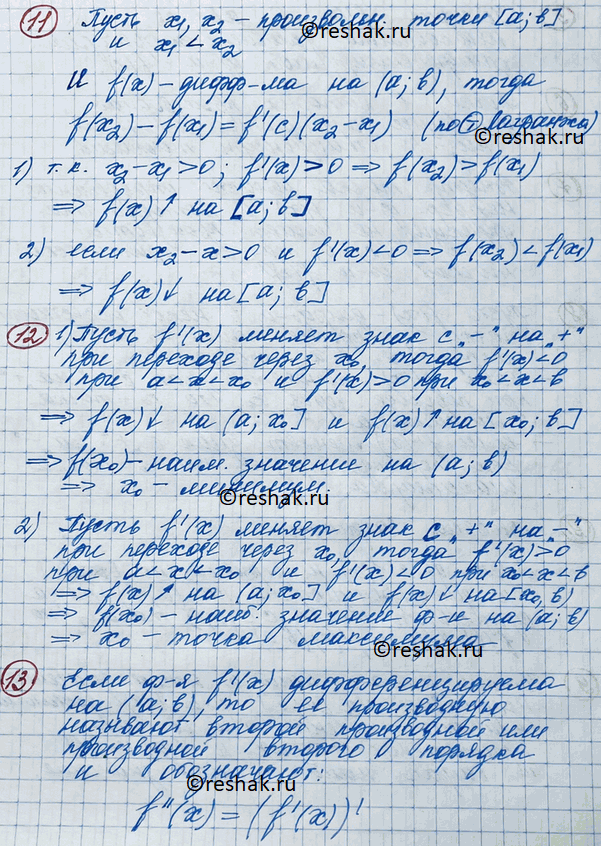 11 Пусть x₁, x₂ – произволн. точки [a; b]
и x₁ < x₂
©reshak.ru
И f(x) – дифф-ма на (a; b), тогда
f(x₂) – f(x₁) = f'(c)(x₂ – x₁) (по Т Лагранжа)
©reshak.ru
1) т.к. x₂ – x₁ > 0; f'(x) > 0 ⇒ f(x₂) > f(x₁)
⇒ f(x)↑ на [a; b]
©reshak.ru
2) если x₂ – x > 0 и f'(x) < 0 ⇒ f(x₂) < f(x₁)
⇒ f(x)↓ на [a; b]
12 1) Пусть f'(x) меняет знак с „–" на „+"
©reshak.ru
при переходе через x₀, тогда f'(x) < 0
при a < x < x₀ и f'(x) > 0 при x₀ < x < b
⇒ f(x)↓ на (a; x₀] и f(x)↑ на [x₀; b]
⇒ f(x₀) – наим. значение на (a; b)
⇒ x₀ – минимум.
©reshak.ru
2) Пусть f'(x) меняет знак с „+" на „–"
при переходе через x₀, тогда f'(x) > 0
при a < x < x₀ и f'(x) < 0 при x₀ < x < b
⇒ f(x)↑ на (a; x₀] и f(x)↓ на [x₀, b)
⇒ f(x₀) – наиб. значение ф-и на (a; b)
⇒ x₀ – точка максимума
©reshak.ru
13 Если ф-я f'(x) дифференцируема
на (a; b), то её производную
называют второй производной или
производной второго порядка
и обозначают:
©reshak.ru
f''(x) = (f'(x))'